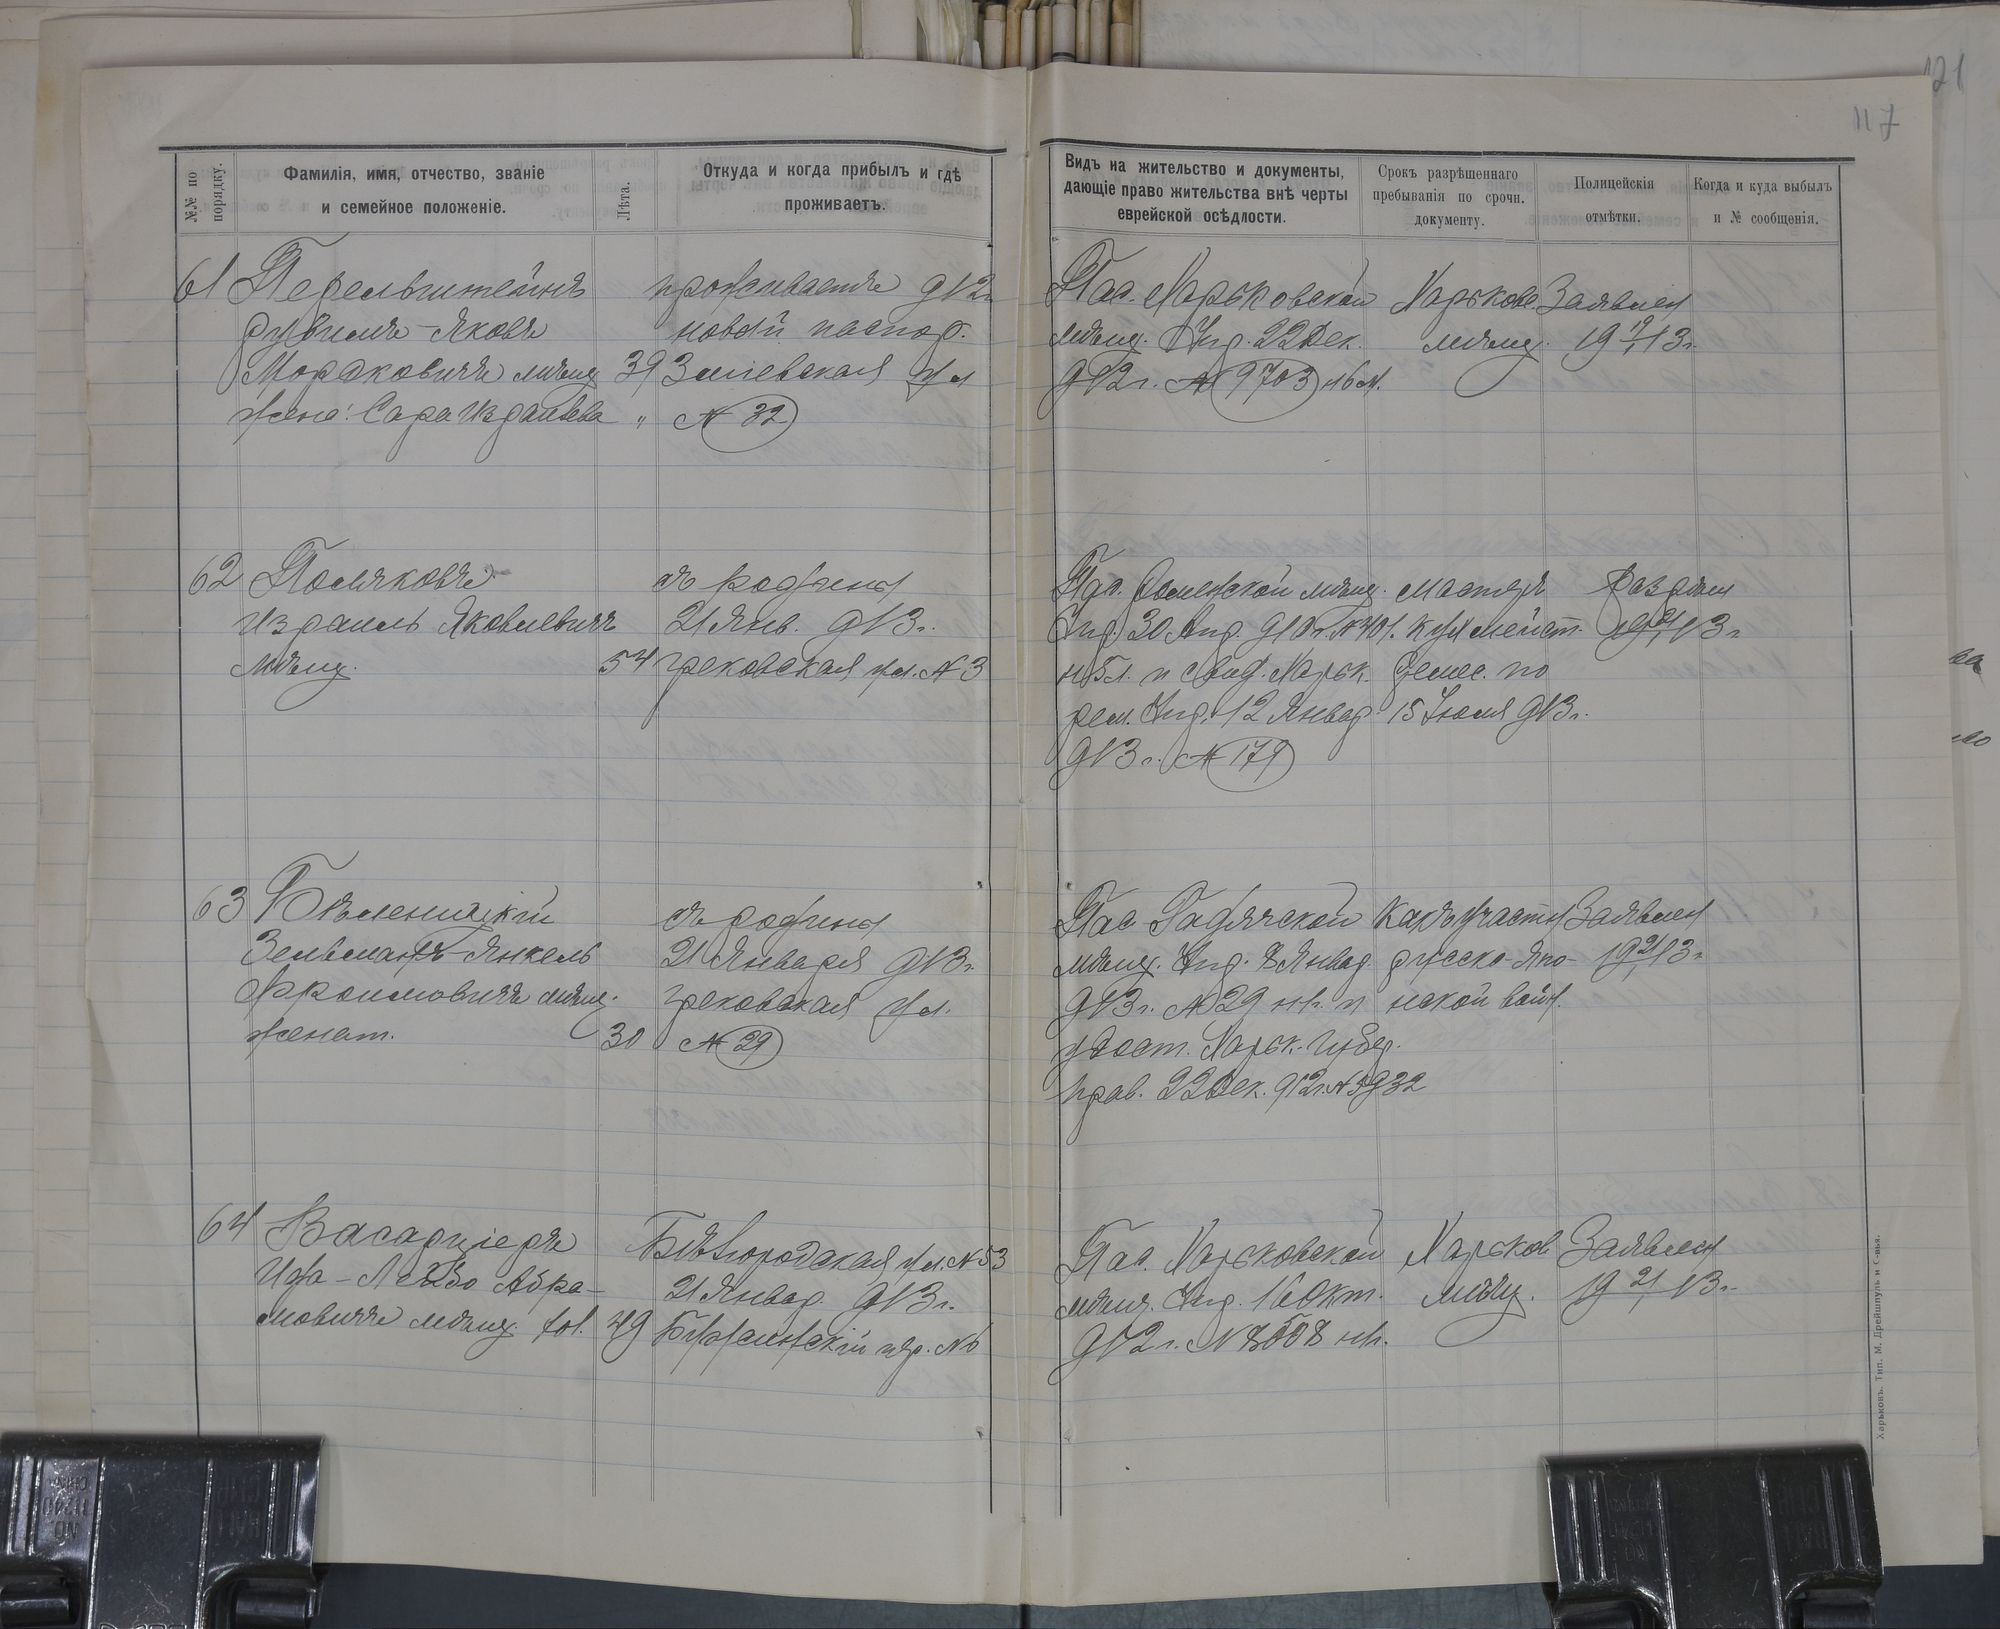 121
117
№№ по порядку.
Фамилія, имя, отчество, званіе
и семейное положеніе.
Лѣта.
Откуда и когда прибылъ и гдѣ
проживаетъ.
Видъ на жительство и документы,
дающіе право жительства внѣ черты
еврейской осѣдлости.
Срокъ разрѣшеннаго
пребыванія по срочн.
документу.
Полицейскія
отмѣтки.
Когда и куда выбылъ
и № сообщенія.
61 Перельштейнъ
Рувимъ-Яковъ
Мордковичъ мѣщ. 39
жена: Сара Израилева "
проживаетъ 912 г.
новый паспор.
Змiевская ул
№ 32
Пас. Харьковской
мѣщ. Упр. 22 Дек.
912 г. № 9703
Харьков.
мѣщ.
Заявлен
19 /1 13 г.
62 Поляковъ
Израиль Яковлевичъ
мѣщ. 54
съ родины
21 Янв. 913 г.
Грековская ул. № 3
Пас. мѣщ.
Упр. 30 Апр. 910 г. № 401.
и свид. Харьк.
рем. Упр. 12 Январ
913 г. № 179
Мастеръ
ремес. по
15 Іюля 913 г.
19 21/1 13 г.
63 Бѣленицкій
Зельманъ-Янкель
Фроимовичъ мѣщ.
женат. 30
съ родины
21 Января 913 г.
Грековская ул.
№ 29
Пас Гадячской
мѣщ. Упр. 8 Январ.
913 г. № 29 и
удост. Харьк. Губер.
прав. 22 Дек. 912 г. № 5932
Какъ участн
русско-япо-
нской войн.
Заявлен
19 21/1 13 г.
64 Васарціеръ
Ица-Лейзо Абра-
мовичъ мѣщ. хол. 49
Бѣлгородская ул. № 53
21 Январ. 913 г.
пер. № 6
Пас. Харьковской
мѣщ. Упр. 16 Окт.
912 г. № 8508
Харьков
мѣщ.
Заявлен
19 21/1 13 г.
Харьковъ. Тип. М. Дрейшпуль и С-вья.